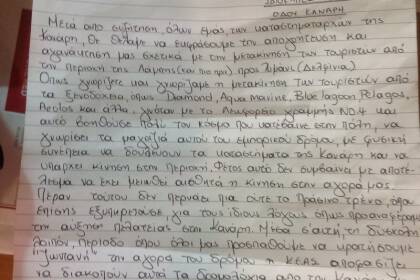 ΟΔΟΥ ΚΑΝΑΡΗ
Μετά από συζήτηση, όλων εμάς, των καταστηματαρχών της
Κανάρη, Θα θέλαμε να εκφράσουμε την απογοήτευση και
αγανάκτηση μας σχετικά με την μετακίνηση των τουριστών από
την περιοχή της Λάμπης (και πιο πριν) προς λιμάνι (Δελφίνια)
Όπως γνωρίζετε και γνωρίζαμε η μετακίνηση των τουριστών από
τα ξενοδοχεία, όπως Diamond, Aqua Marine, Blue lagoon, Pelagos,
Aeolos και άλλα, γινόταν με το Λεωφορείο γραμμής ΝΟ.4 και
αυτό βοηθούσε πολύ τον κόσμο που κατέβαινε στην πόλη, να
γνωρίσει τα μαγαζιά αυτού του εμπορικού δρόμου, με φυσική
συνέπεια να δουλεύουν τα καταστήματα της Κανάρη και να
υπάρχει κίνηση στην περιοχή. Φέτος αυτό δεν συμβαίνει με αποτέ-
λεσμα να έχει μειωθεί αισθητά η κίνηση στην αγορά μας.
Πέραν τούτου δεν περνάει πια ούτε το Πράσινο τρένο, όπου
επίσης εξυπηρετούσε, για τους ίδιους λόγους όπως προαναφέραμε
την αύξηση πελατείας στην Κανάρη. Μέσα σ'αυτή, τη δύσκολη
λοιπόν, περίοδο όπου όλοι μας προσπαθούμε να κρατήσουμε
"ζωντανή" την αγορά του δρόμου η ΚΕΑΣ αποφασίζει
να διακοπούν αυτά τα δρομολόγια από την Κανάρη